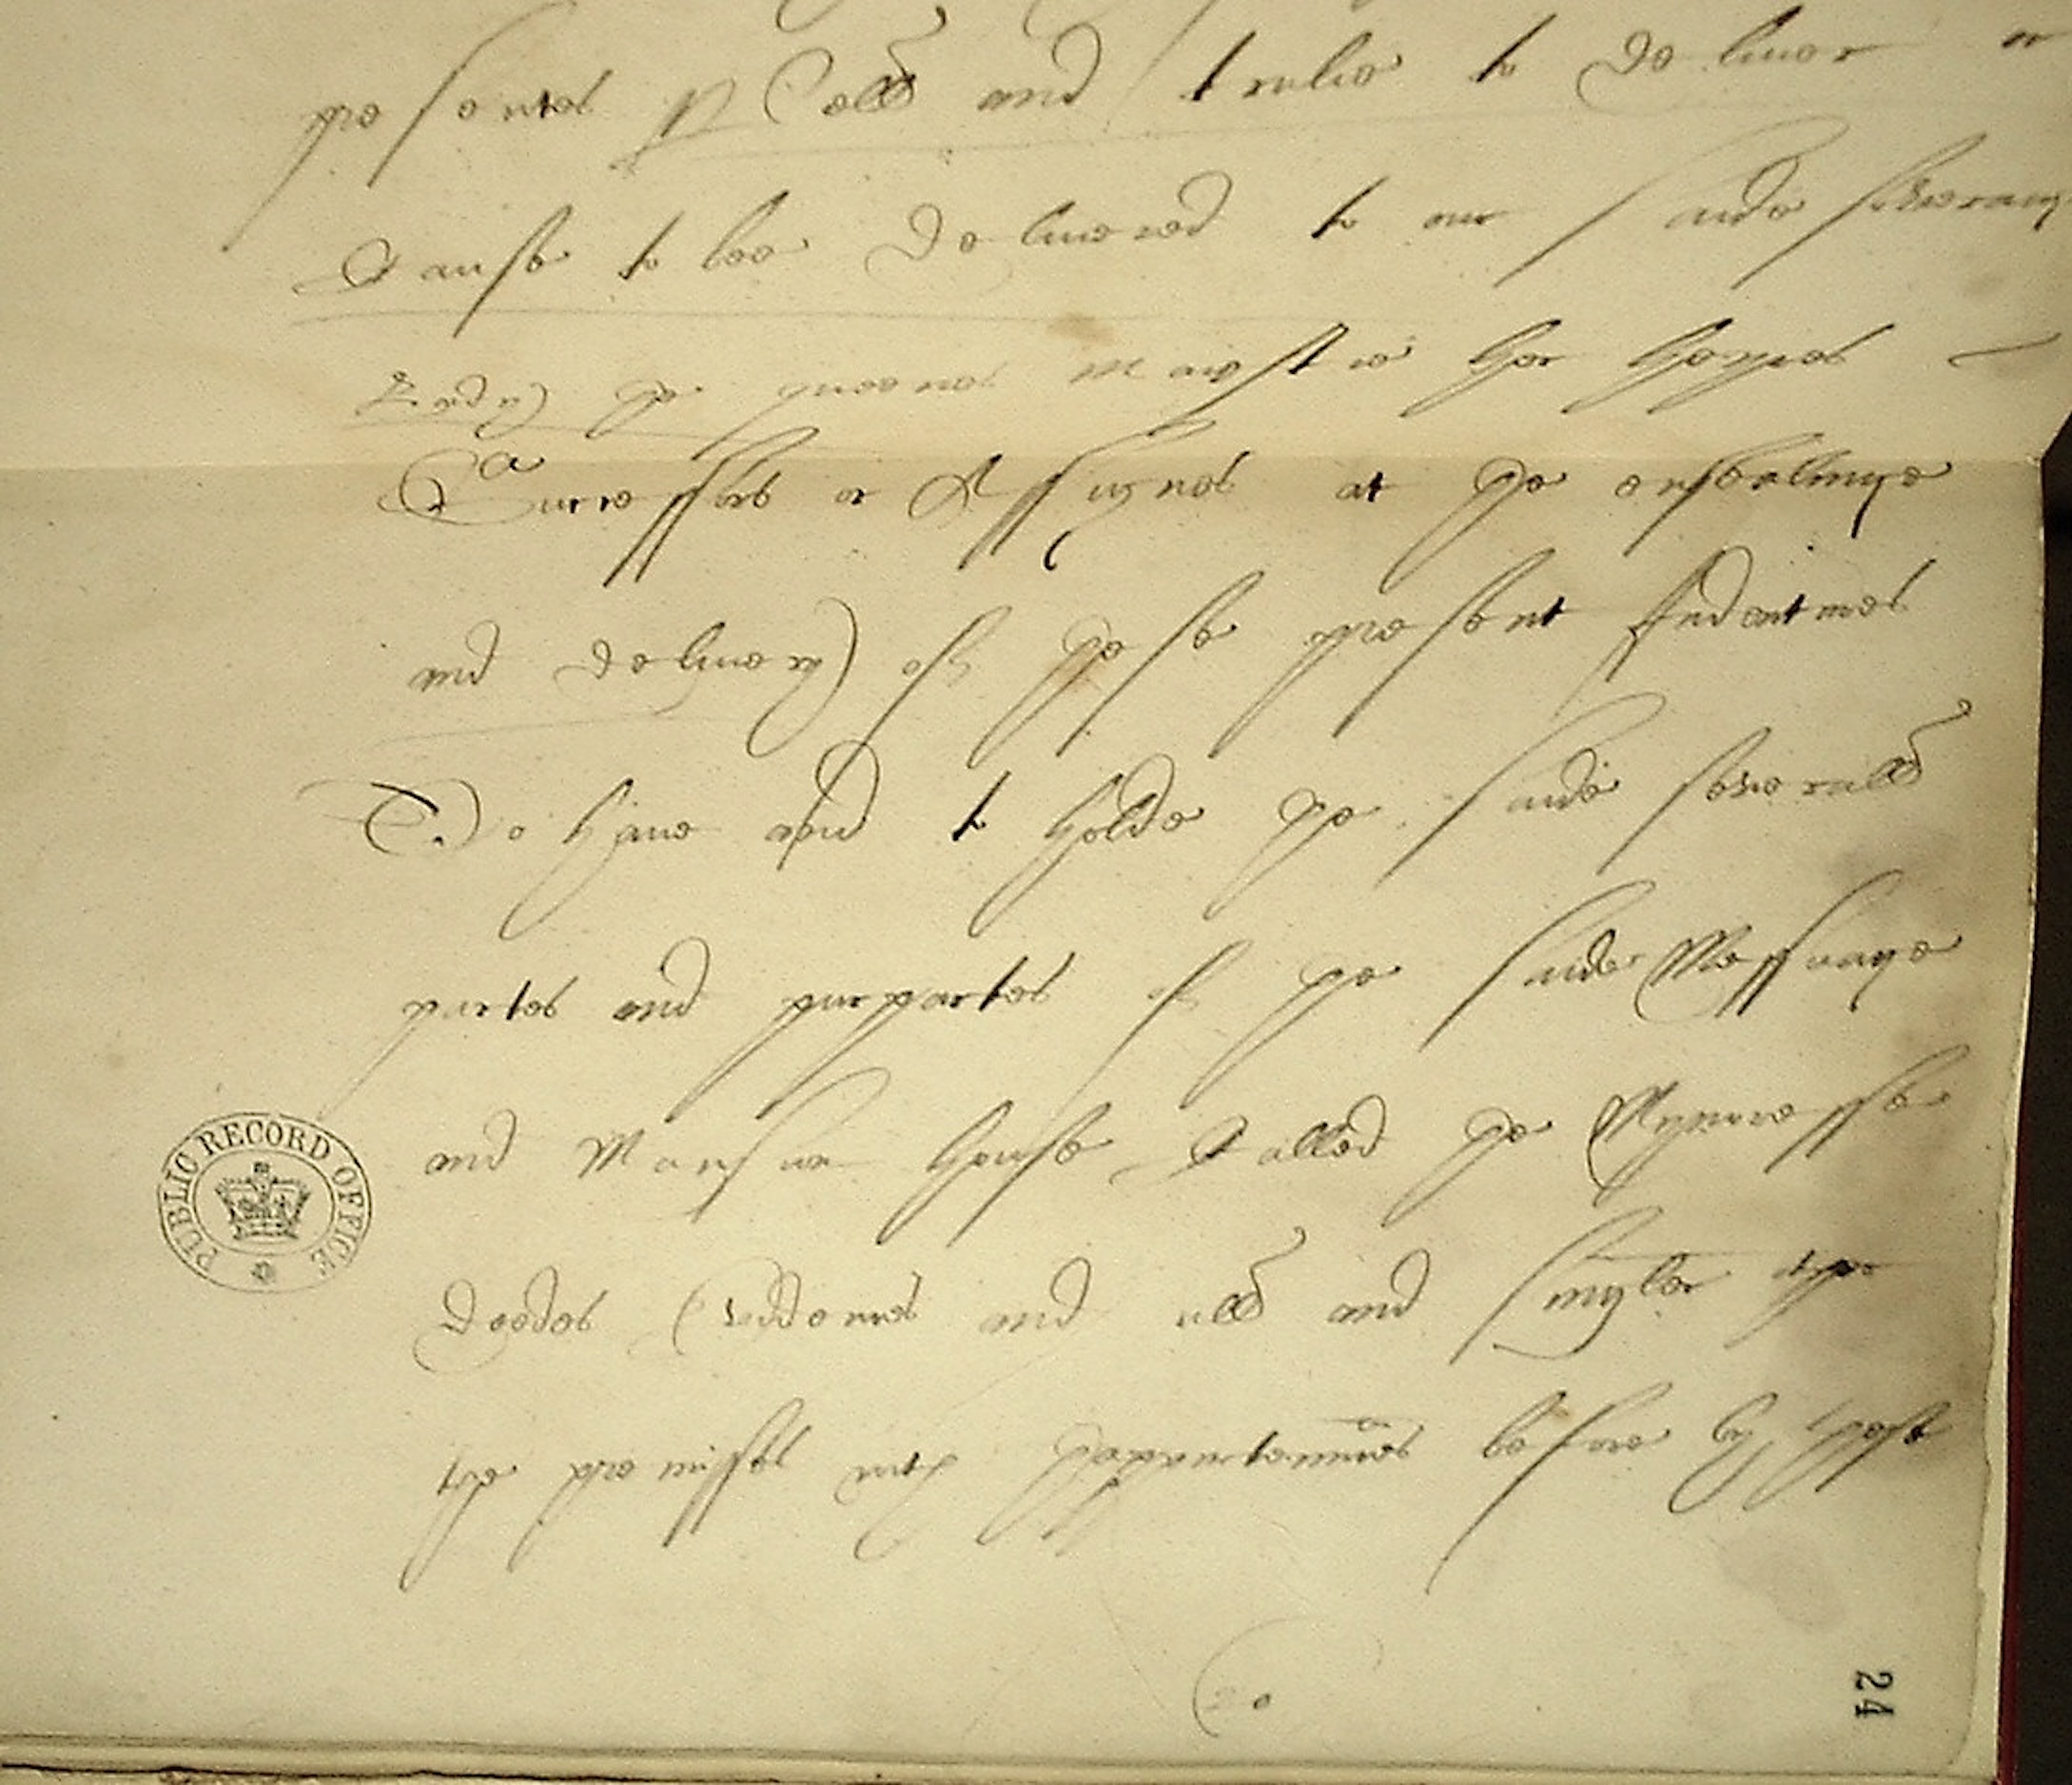 presentes well and trulie to deliuer or
Cause to bee deliuered to our saide soveraign
Lady the queenes maiestie her heyres
Successors or Assignes at the ensealinge
and deliuery of these present Indentures
To haue and to holde the saide severall
partes and purpartes of the saide Messuage
and Mansion house Called the Mynoresse
deedes Evidences and all and singler other
the premisses with thappurtenannces before by these
PUBLIC RECORD OFFICE
24